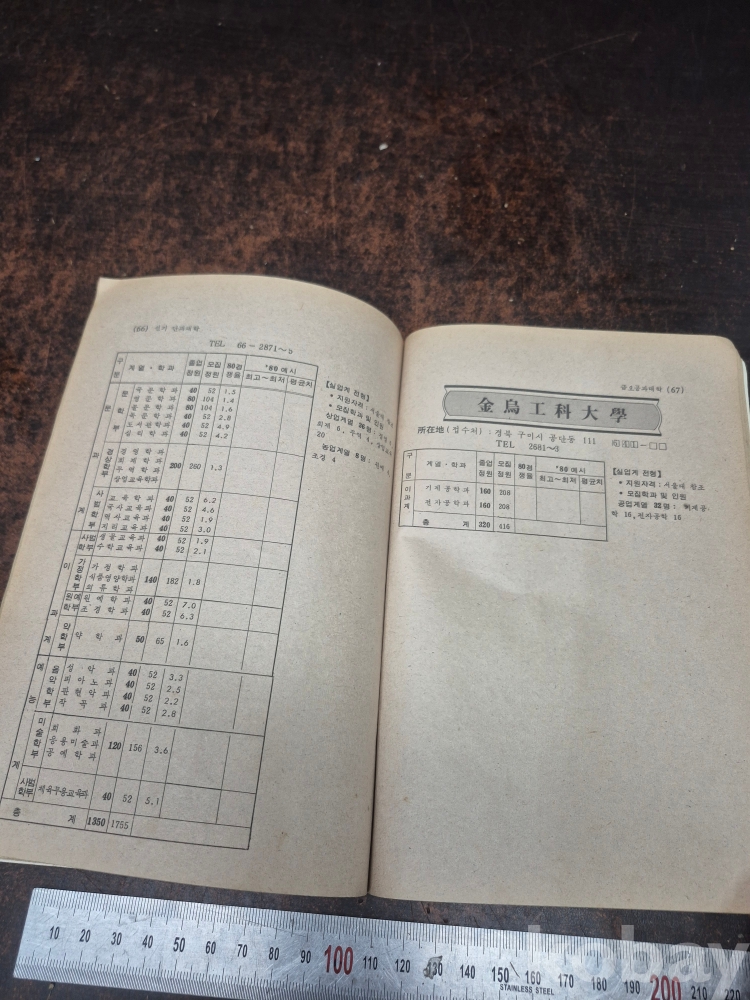 (66) 전기 단과대학
TEL 66-2871~5
구분 계열·학과 졸업정원 모집정원 80경쟁율 '80 예시
최고~최저 평균치
문
문학부
국문학과 40 52 1.5
영문학과 80 104 1.4
80 104 1.6
40 52 2.8
도서관학과 40 52 4.9
심리학과 40 52 4.2
과
경상학부
경영학과
회계학과
무역학과
200 260 1.3
계
사범학부
교육학과 40 52 6.2
국사교육과 40 52 4.6
40 52 1.9
지리교육과 40 52 3.0
이
사범학부
생물교육과 40 52 1.9
수학교육과 40 52 2.1
가정학부
가정학과
식품영양학과
의류학과
140 182 1.8
과
원예학부
원예학과 40 52 7.0
조경학과 40 52 6.3
계
약학부
약학과 50 65 1.6
예
음악학부
성악과 40 52 3.3
피아노과 40 52 2.5
관현악과 40 52 2.2
작곡과 40 52 2.8
능
미술학부
회화과
응용미술과
공예학과
120 156 3.6
계
사범학부
체육무용교육과 40 52 5.1
총계 1350 1755
[실업계 전형]
• 지원자격: 서울예
• 모집학과 및 인원
상업계열 36명:
20
농업계열 8명:
조경 4
금오공과대학 (67)
金烏工科大學
所在地(접수처): 경북 구미시 공단동 111
TEL 2681~3
구분 계열·학과 졸업정원 모집정원 80경쟁율 '80 예시
최고~최저 평균치
이과계
기계공학과 160 208
전자공학과 160 208
총계 320 416
[실업계 전형]
• 지원자격: 서울예 참조
• 모집학과 및 인원
공업계열 32명: 기계공
학 16, 전자공학 16
10 20 30 40 50 60 70 80 90 100 110 120 130 140 150 160 170 180 190 200 210 220
STAINLESS STEEL
kobay